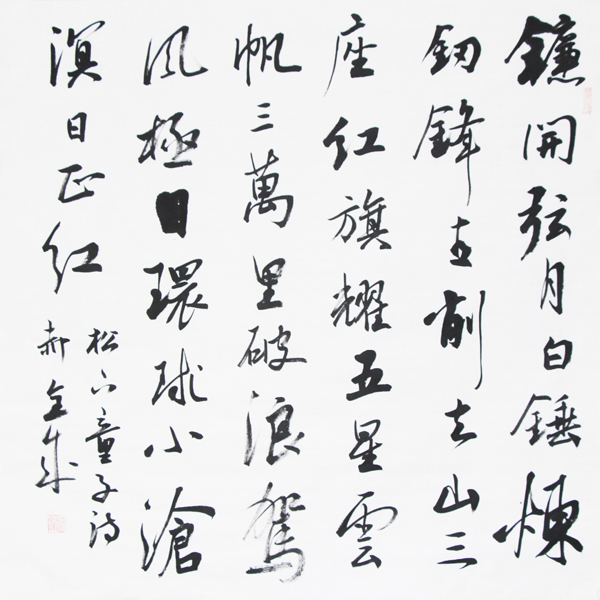 鐮開弦月白錘煉
釰鋒削去山三
座紅旗耀五星雲
帆三萬里破浪駕
風極目環球小滄
溟日正紅
松下童子詩
郝全成